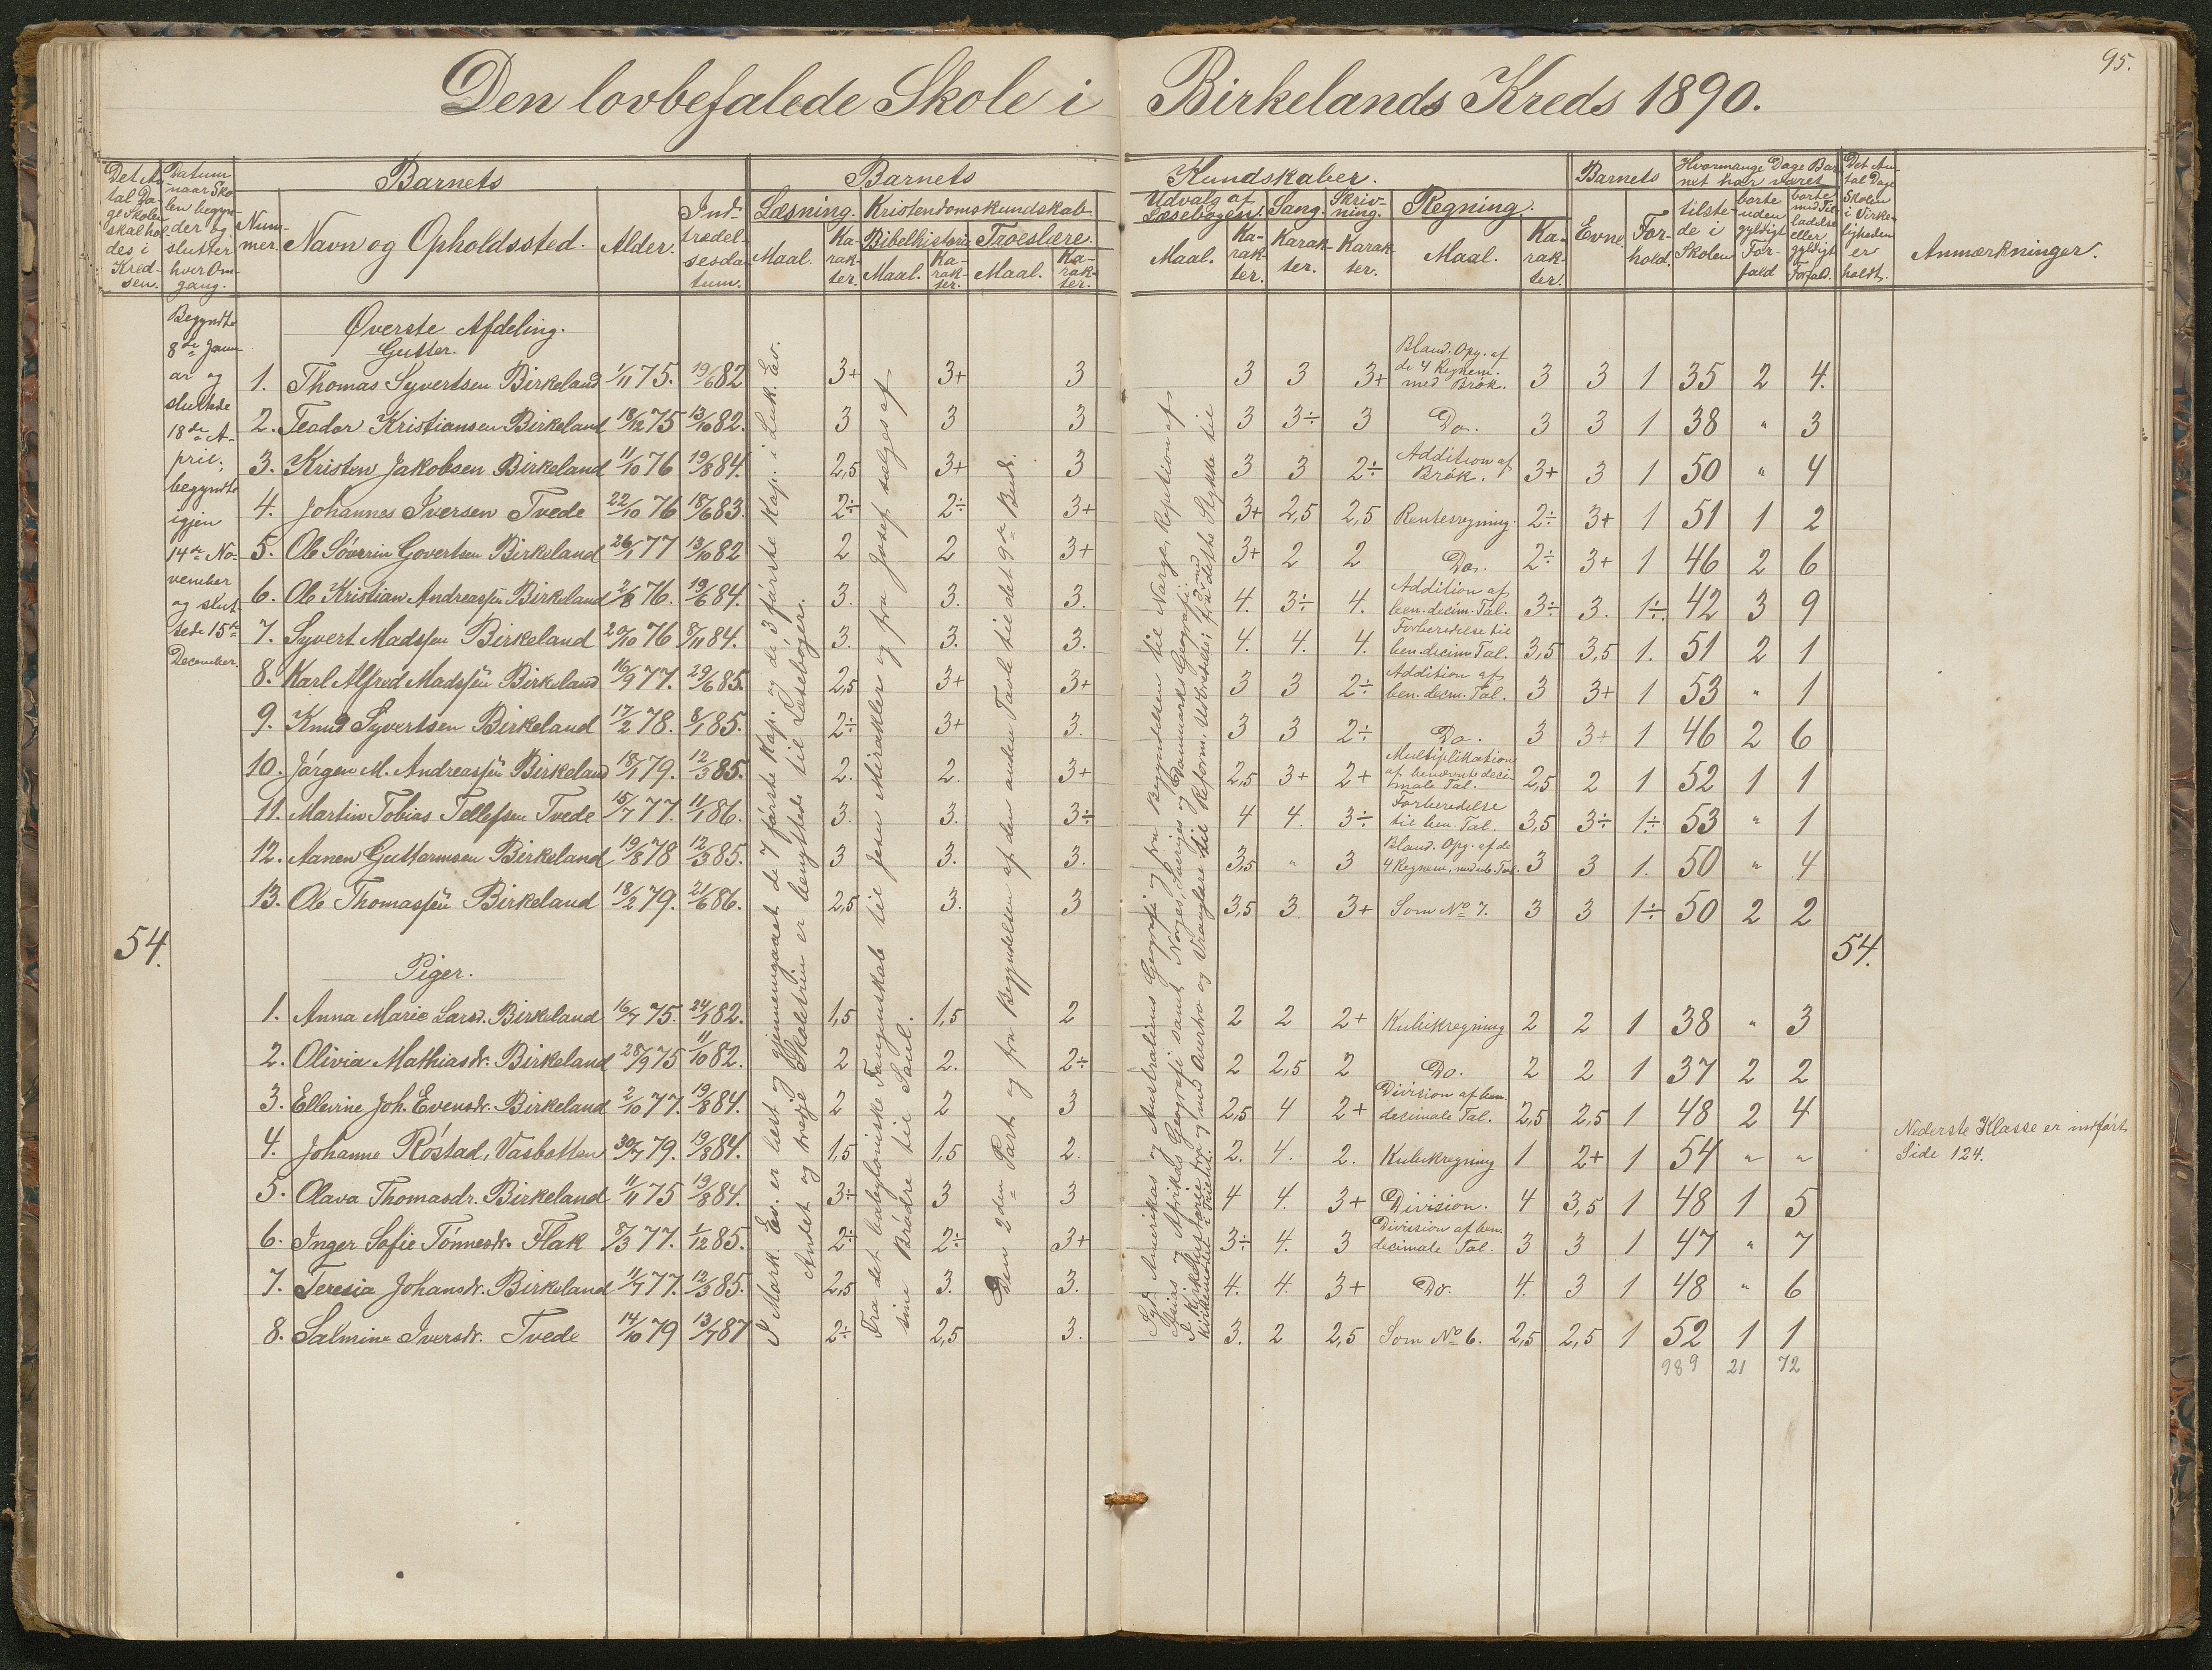 95.
Den lovbefalede Skole i Birkelands Kreds 1890.
Det An-
tal Da-
ge Skolen
skal hol-
des i
Kred-
sen.
Datum
naar Sko-
len begyn-
der og
slutter
hver Om-
gang.
Barnets
Num-
mer.
Navn og Opholdssted.
Alder.
Ind-
trædel-
sesda-
tum.
Barnets
Læsning.
Maal.
Ka-
rak-
ter.
Kristendomskundskab
Bibelhistorie
Maal.
Ka-
rak-
ter.
Troeslære.
Maal.
Ka-
rak-
ter.
Kundskaber.
Udvalg af
Læsebogen.
Maal.
Ka-
rak-
ter.
Sang.
Karak-
ter.
Skriv-
ning.
Karak-
ter.
Regning.
Maal.
Ka-
rak-
ter.
Barnets
Evne.
For-
hold.
Hvormange Dage Bar-
net har været
tilste-
de i
Skolen
borte
uden
gyldigt
For-
fald
borte
med Til-
ladelse
eller
gyldigt
Forfald.
Det An-
tal Dage
Skolen
i Virke-
ligheden
er
holdt.
Anmærkninger.
Begyndte
8de Janu-
ar og
sluttede
18de A-
pril;
begyndte
igjen
14de No-
vember
og slut-
tede 15de
December.
54.
Øverste Afdeling.
Gutter.
1. Thomas Syvertsen Birkeland 1/11 75. 19/6 82 3+ 3+ 3 3 3 3+ Bland. Opg. af de 4 Regnem. med Brøk. 3 3 1 35 2 4.
2. Teodor Kristiansen Birkeland 18/12 75 13/10 82. 3 3 3 3 3÷ 3 Do. 3 3 1 38 " 3
3. Kristen Jakobsen Birkeland 11/10 76 19/8 84. 2,5 3+ 3 3 3 2÷ Addition af Brøk. 3+ 3 1 50 " 4
4. Johannes Iversen Tvede 22/10 76 18/6 83. 2÷ 2÷ 3+ 3+ 2,5 2,5 Rentesregning. 2÷ 3+ 1 51 1 2
5. Ole Søverin Govertsen Birkeland 26/1 77 13/10 82 2 2 3+ 3+ 2 2 Do. 2÷ 3+ 1 46 2 6
6. Ole Kristian Andreassen Birkeland 2/8 76. 19/6 84. 3. 3. 3. 4. 3÷ 4. Addition af ben. decim. Tal. 3÷ 3. 1÷ 42 3 9
7. Syvert Madssen Birkeland 20/10 76 8/11 84. 3. 3. 3. 4. 4. 4. Forberedelse til ben. decim Tal. 3,5 3,5 1. 51 2 1
8. Karl Alfred Madssen Birkeland 16/9 77. 29/6 85. 2,5 3+ 3+ 3 3 2÷ Addition af ben. decm. Tal. 3 3+ 1 53 " 1
9. Knud Syvertsen Birkeland 17/2 78. 8/1 85. 2÷ 3+ 3. 3 3 2÷ Do. 3 3+ 1 46 2 6
10. Jørgen M. Andreassen Birkeland 18/1 79. 12/3 85. 2. 2. 3+ 2,5 3+ 2+ Multiplikation af benævnte deci- male Tal. 2,5 2 1 52 1 1
11. Martin Tobias Tellefsen Tvede 15/7 77. 11/1 86. 3. 3. 3÷ 4 4. 3÷ Forberedelse til ben. Tal. 3,5 3÷ 1÷ 53 " 1
12. Aanen Guttormsen Birkeland 19/8 78 12/3 85. 3 3. 3. 3,5 " 3 Bland. Opg. af de 4 Regnem. med ub. Tal. 3 3 1. 50 " 4
13. Ole Thomassen Birkeland 18/2 79. 21/6 86. 2,5 3. 3 3,5 3 3+ Som No 7. 3 3 1÷ 50 2 2
54.
Piger.
1. Anna Marie Larsd. Birkeland 16/7 75. 24/1 82. 1,5 1,5 2 2 2 2+ Kubikregning 2 2 1 38 " 3
2. Olivia Mathiasdr. Birkeland 28/9 75 11/10 82. 2 2. 2÷ 2 2,5 2 Do. 2 2 1 37 2 2
3. Ellevine Joh. Evensdr. Birkeland 2/10 77. 19/8 84. 2 2 3 2,5 4 2+ Division af ben. decimale Tal. 2,5 2,5 1 48 2 4
4. Johanne Røstad, Vasbotten 30/7 79. 19/8 84. 1,5 1,5 2. 2. 4. 2. Kubikregning 1 2+ 1 54 " "
5. Olava Thomasdr. Birkeland 11/11 75 19/8 84. 3÷ 3 3 4 4. 3+ Division. 4 3,5 1 48 1 5
6. Inger Sofie Tønnesdr. Flak 8/3 77. 1/12 85. 2÷ 2÷ 3+ 3÷ 4. 3 Division af ben. decimale Tal. 3 3 1 47 " 7
7. Teresia Johansdr. Birkeland 11/7 77. 12/3 85. 2,5 3. 3. 4. 4. 3+ Do. 4. 3 1 48 " 6
8. Salmine Iversdr. Tvede 14/10 79 13/7 87 2÷ 2,5 3. 3. 2 2,5 Som No 6. 2,5 2,5 1 52 1 1
989 21 72
I Mark. Ev. er læst og gjennemgaaet de 7 første Kap. og de 3 første Kap. i Luk. Ev.
Andet og tredje Skoletrin er benyttede til Læsebøger.
Fra det babyloniske Fangenskab til Jesu Mirakler og fra Josef sælges af
sine Brødre til Saul.
Den 2den Part og fra Begyndelsen af den anden Tavle til det 9de Bud.
Syd-Amerikas og Australiens Geografi og fra Begyndelsen til Norge, Repetition af
Asias og Afrikas Geografi samt Norges, Sveriges og Danmarks Geografi.
I Kirkehistorie fra og med Averho og Vranglære til Reform. Udbredelse; fra og med dette Stykke til
Kirkemødet i Trient.
Nederste Klasse er indført
Side 124.